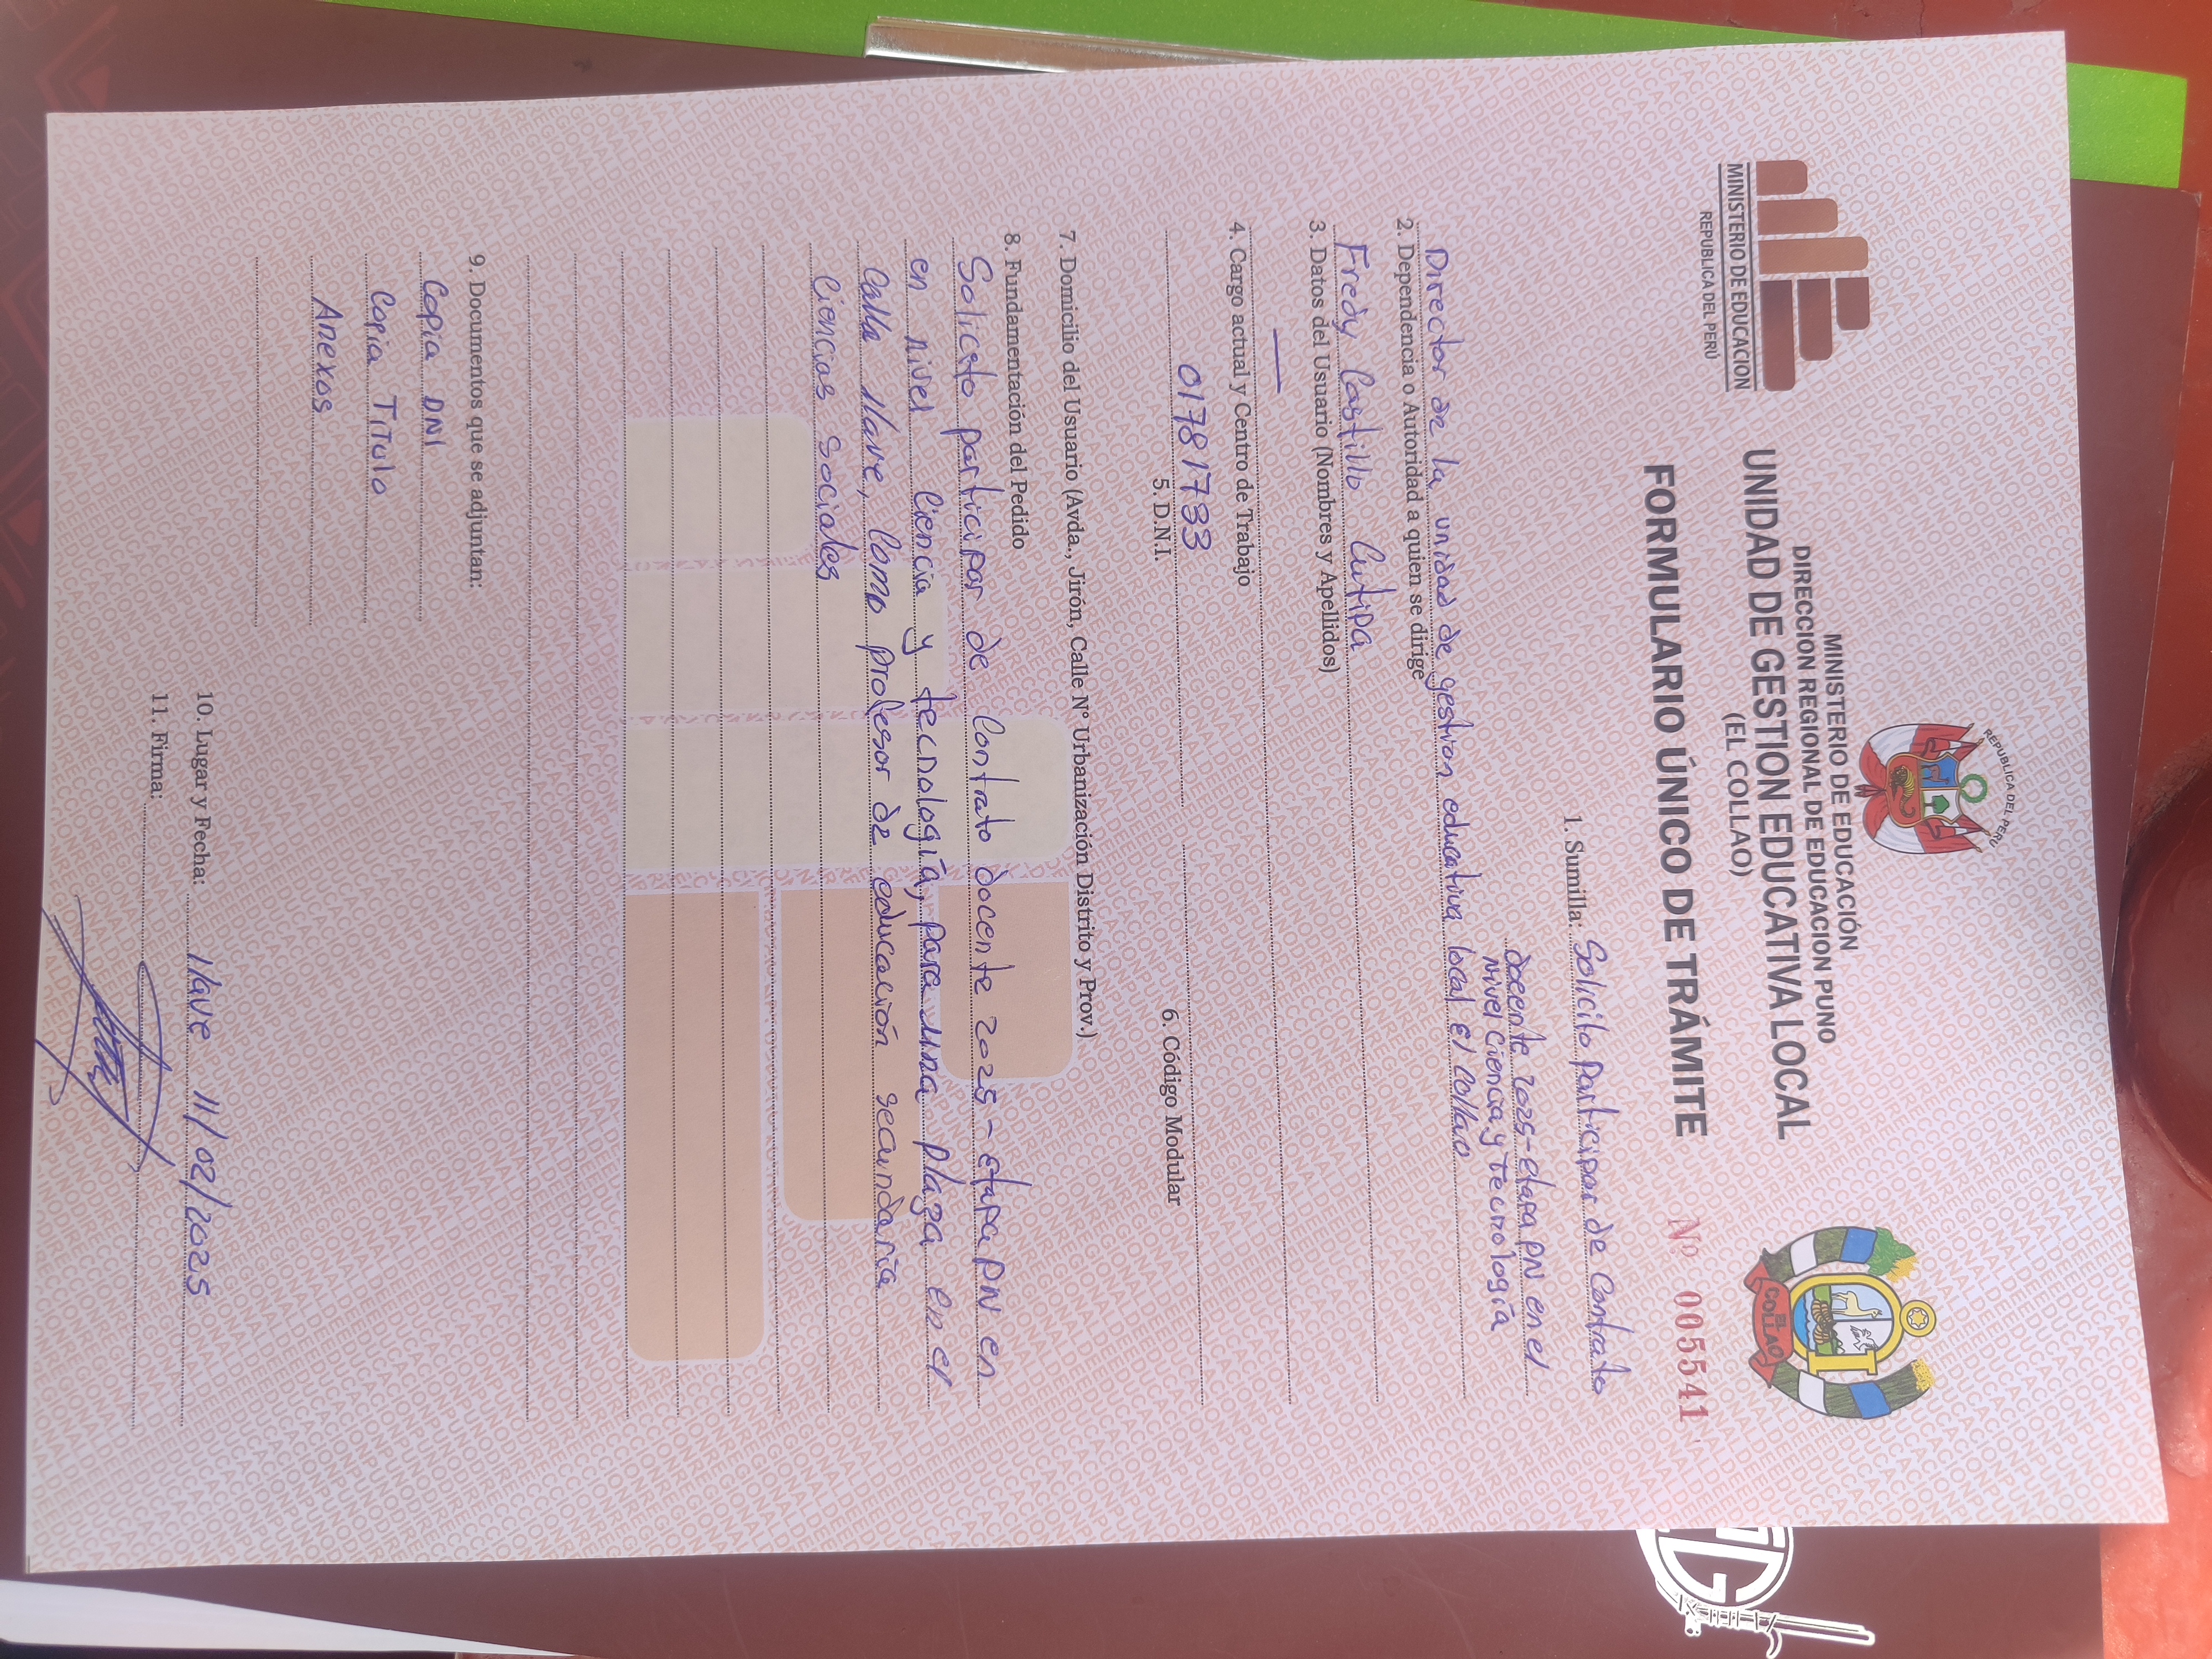 MINISTERIO DE EDUCACION
REPUBLICA DEL PERÚ
REPUBLICA DEL PERU
MINISTERIO DE EDUCACIÓN
DIRECCION REGIONAL DE EDUCACION PUNO
UNIDAD DE GESTION EDUCATIVA LOCAL
(EL COLLAO)
EL COLLAO
FORMULARIO ÚNICO DE TRÁMITE
Nº 005541
1. Sumilla: Solicito participar de Contrato
docente 2025-etapa PN en el
nivel Ciencia y Tecnología
Director de la unidad de gestion educativa local El Collao
2. Dependencia o Autoridad a quien se dirige
Fredy Castillo Cutipa
3. Datos del Usuario (Nombres y Apellidos)
—
4. Cargo actual y Centro de Trabajo
01781733
5. D.N.I.
6. Código Modular
7. Domicilio del Usuario (Avda., Jirón, Calle Nº Urbanización Distrito y Prov.)
8. Fundamentación del Pedido
Solicito participar de Contrato docente 2025-etapa PN en
en nivel Ciencia y tecnología, para una plaza en el
Calla Ilave, Como profesor de educación secundaria
Ciencias Sociales
9. Documentos que se adjuntan:
Copia DNI
Copia Titulo
Anexos
10. Lugar y Fecha: Ilave 11/02/2025
11. Firma: